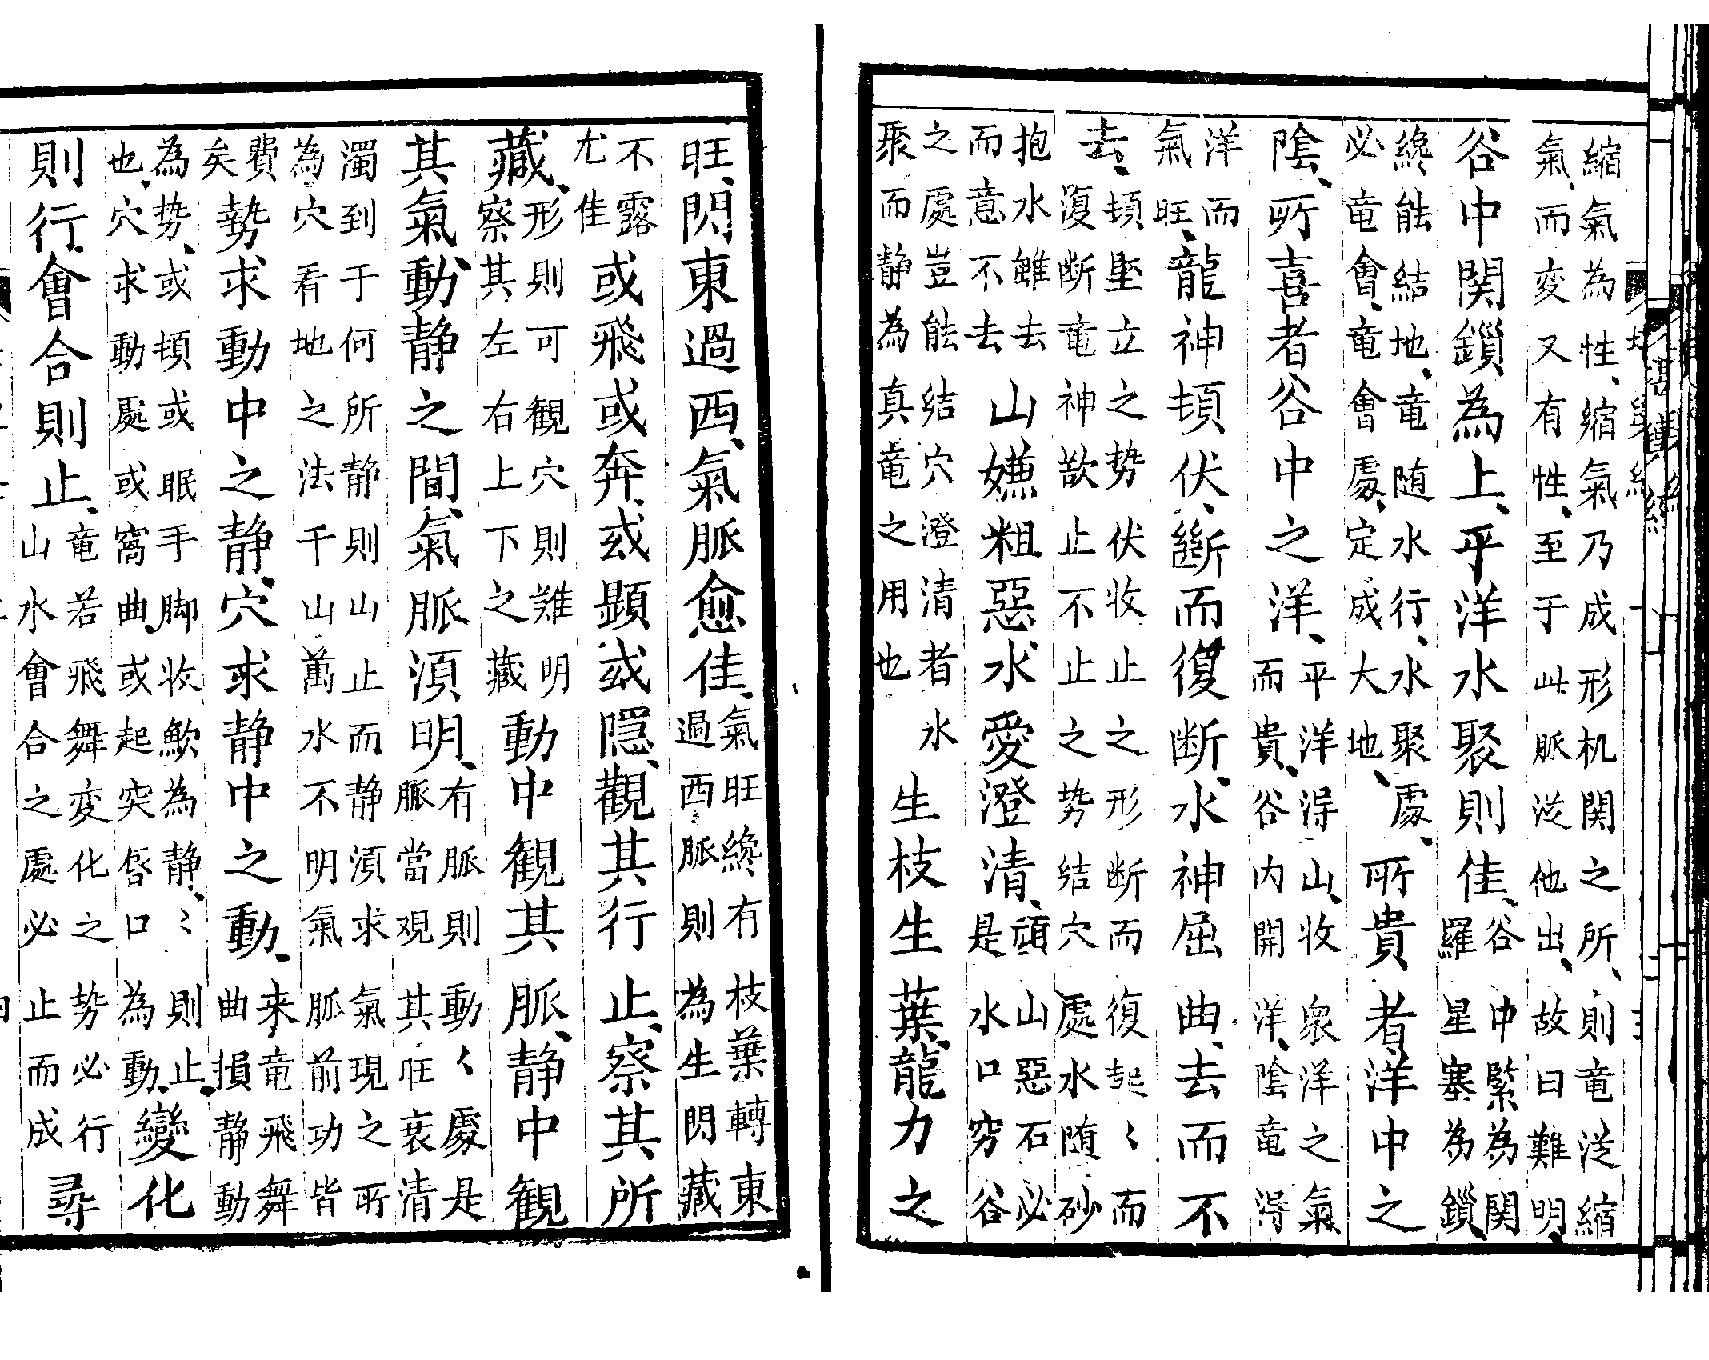 縮氣為性、縮氣乃成形机関之所、則竜泛縮
氣、而変又有性、至于此脈泛他出、故曰難明、
谷中関鎖為上、平洋水聚則佳、
谷中緊為関
羅星塞為鎖、
纔能結地、竜随水行、水聚處、
必竜會、竜會處、定成大地、
所貴者洋中之
陰、所喜者谷中之洋、
平洋得山、收衆洋之氣
而貴、谷内開洋、陰竜得
洋而
氣旺、
龍神頓伏、断而復断、水神屈曲、去而不
去、
頓坚立之势伏收止之形断而復起〻而
復断竜神歆止不止之势結穴處水随砂
抱水雖去
而意不去
山嫌粗惡、水愛澄清、
頑山惡石必
是水口穷谷
之處豈能結穴澄清者水
聚而静為真竜之用也
生枝生葉、龍力之
旺、閃東過西、氣脈愈佳、
氣旺纔有枝葉轉東
過西脈則為生閃藏
不露
尤佳
或飛或奔、或顕或隠、觀其行止、察其所
藏、
形則可観穴則難明
察其左右上下之藏
動中観其脈、静中観
其氣、動静之間、氣脈湏明、
有脈則動〻處是
脈當观其旺衰清
濁到于何所静則山止而静湏求氣現之所
為穴看地之法千山萬水不明氣脈前功皆
費
矣
勢求動中之静、穴求静中之動、
来竜飛舞
曲損静動
為势、或頓或眠手脚收歛為静、〻則止、
也、穴求動處或窩曲、或起突唇口為動、
變化
則行、會合則止、
竜若飛舞変化之势必行
山水會合之處必止而成
尋